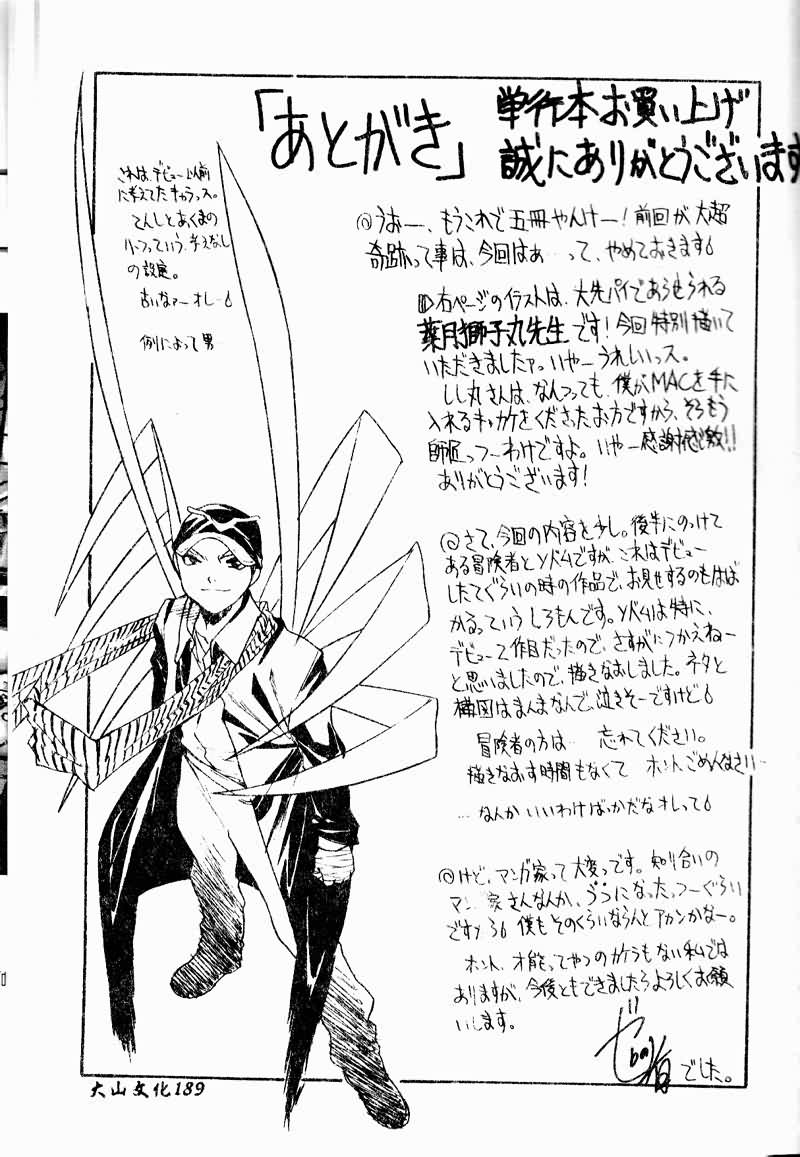 「あとがき」
単行本お買い上げ
誠にありがとうございます
これは、デビュー以前
に考えてたキャラッス。
てんしとあくまの
ハーフっていう、考えなし
の設定。
古いなァーオレ…
例によって男
◎うおー、もうこれで五冊やんけー!前回が大超
奇跡って事は、今回はぁ…って、やめておきます
右ページのイラストは、大先パイであらせられる
薬月獅子丸先生です!今回特別描いて
いただきましたァ。いやーうれしいっス。
しし丸さんは、なんつっても、僕がMACを手に
入れるキッカケをくださったお方ですから、そらもう
師匠っつーわけですよ。いやー感謝感激!!
ありがとうございます!
◎さて、今回の内容を少し。後半にのっけて
ある冒険者とyバムですが、これはデビュー
したてぐらいの時の作品で、お見せするのもはば
かるっていうしろもんです。yバムは特に、
デビュー2作目だったので、さすがにつかえねー
と思いましたので、描きなおしました。ネタと
構図はまんまなんで、泣きそーですけど
冒険者の方は… 忘れてください。
描きなおす時間もなくて ホントごめんなさい…
…なんかいいわけばっかだなオレって
◎けど、マンガ家って大変っです。知り合いの
マンガ家さんなんか、うつになったっつーぐらい
ですから 僕もそのくらいならんとアカンかなー。
ホント、才能ってやつのカケラもない私では
ありますが、今後ともできましたらよろしくお願
いします。
でした。
大山文化189